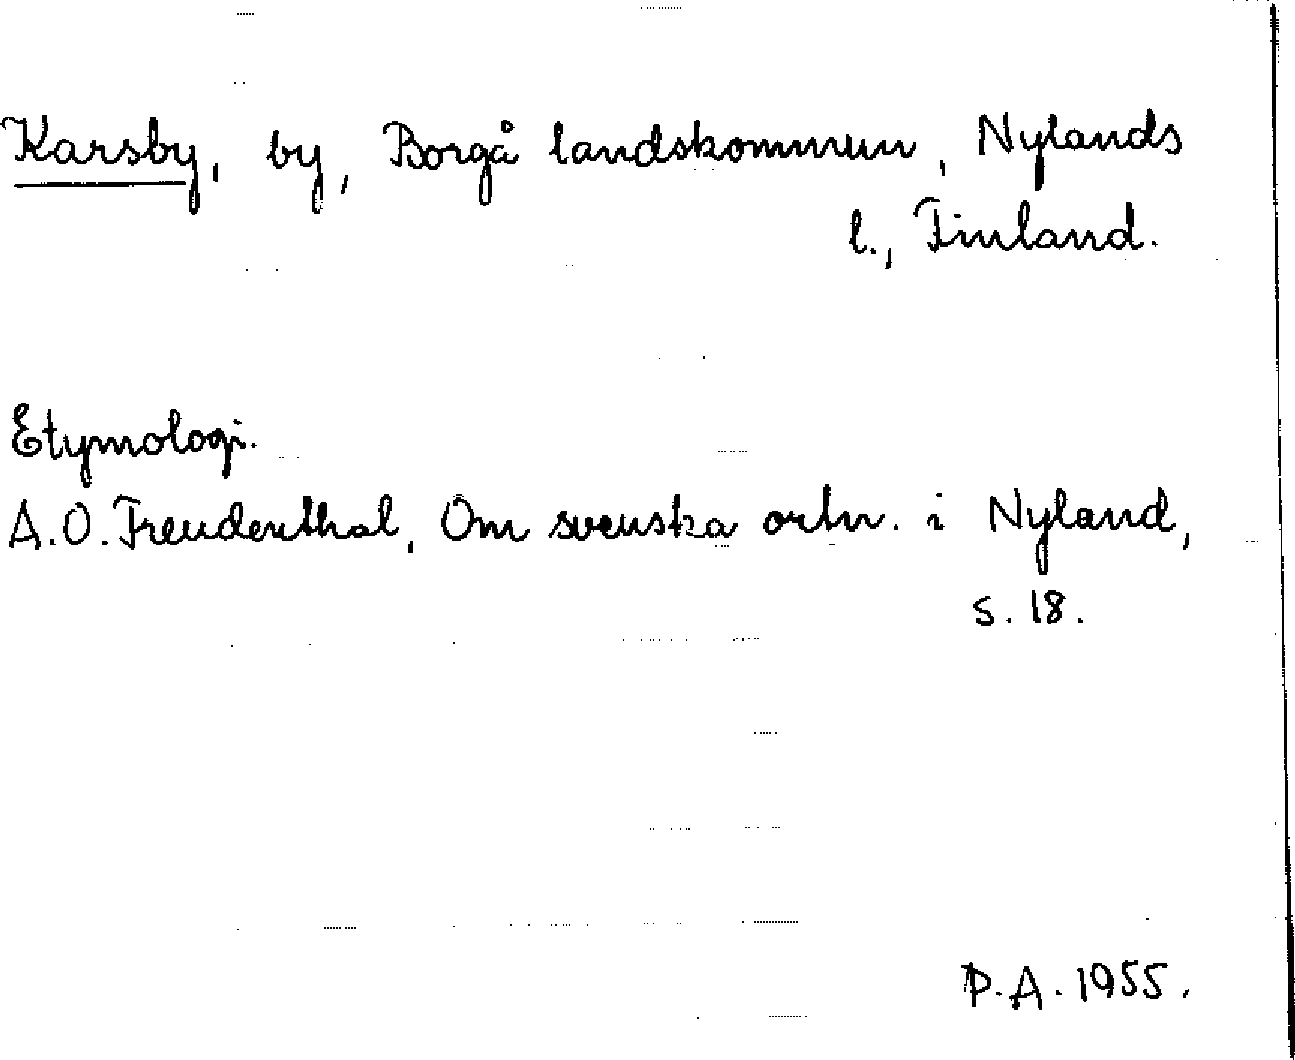 Karsby, by, Borgå landskommun, Nylands
l., Finland.
Etymologi.
A.O. Freudenthal, Om svenska ortn. i Nyland,
s. 18.
P.A. 1955.